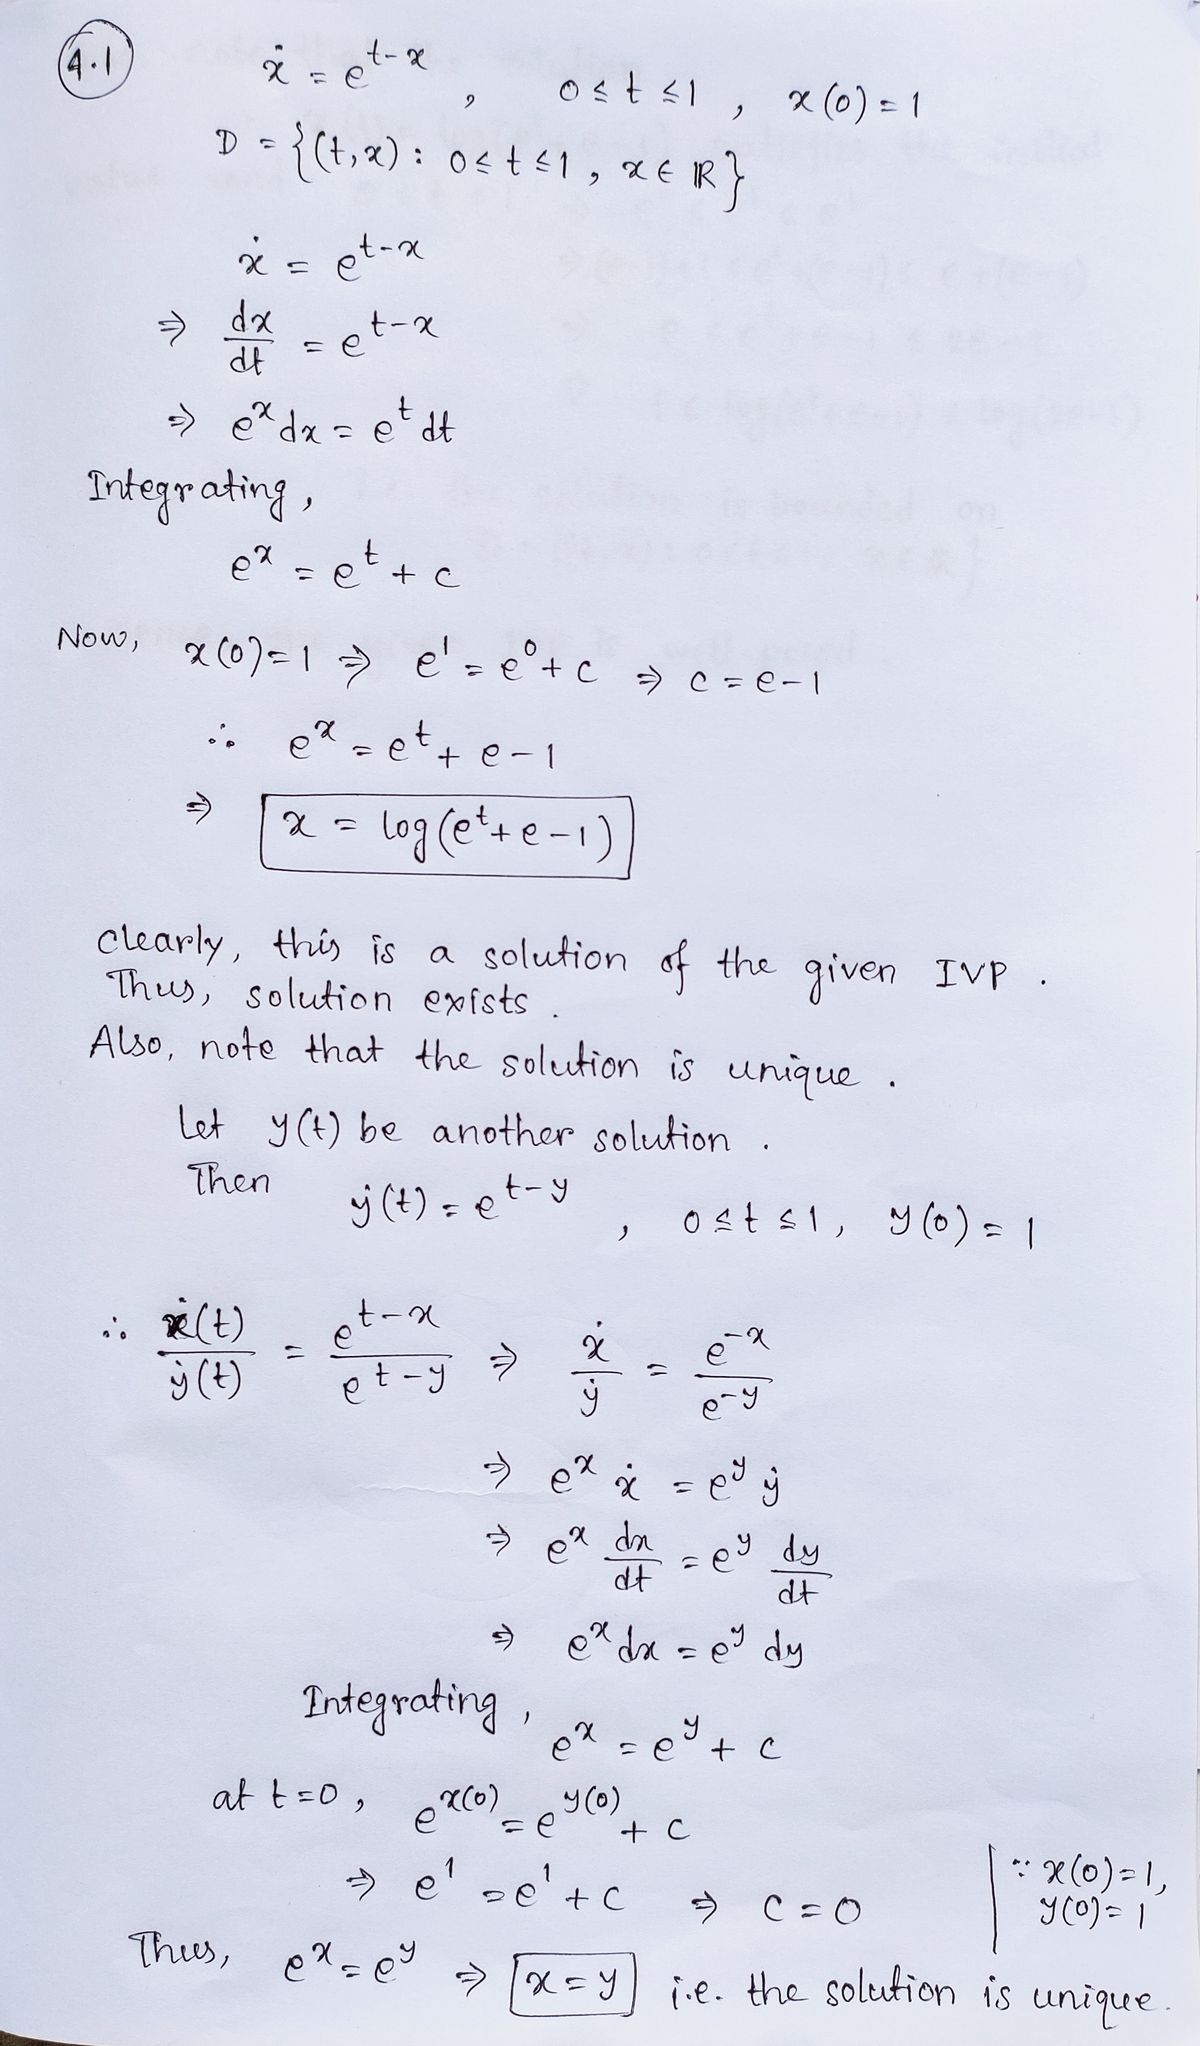 4.1
ẋ = e^{t-x}, 0 ≤ t ≤ 1, x(0) = 1
D = {(t,x) : 0 ≤ t ≤ 1, x ∈ ℝ}
ẋ = e^{t-x}
⇒ dx/dt = e^{t-x}
⇒ e^x dx = e^t dt
Integrating,
e^x = e^t + c
Now, x(0)=1 ⇒ e^1 = e^0 + c ⇒ c = e-1
∴ e^x = e^t + e-1
⇒ x = log(e^t + e-1)
clearly, this is a solution of the given IVP.
Thus, solution exists.
Also, note that the solution is unique.
Let y(t) be another solution.
Then ẏ(t) = e^{t-y}, 0 ≤ t ≤ 1, y(0) = 1
∴ ẋ(t)/ẏ(t) = e^{t-x}/e^{t-y} ⇒ ẋ/ẏ = e^{-x}/e^{-y}
⇒ e^x ẋ = e^y ẏ
⇒ e^x dx/dt = e^y dy/dt
⇒ e^x dx = e^y dy
Integrating,
e^x = e^y + c
at t=0, e^{x(0)} = e^{y(0)} + c
⇒ e^1 = e^1 + c ⇒ c = 0 | ∵ x(0)=1,
y(0)=1
Thus, e^x = e^y ⇒ x = y i.e. the solution is unique.